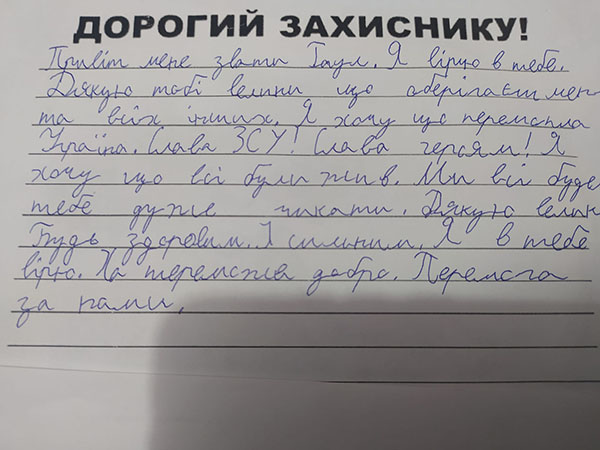 ДОРОГИЙ ЗАХИСНИКУ!
Привіт мене звати. Я вірю в тебе.
Дякую тобі велики що оберігаєш мен
та всіх інших. Я хочу що перемогла
Україна. Слава ЗСУ! Слава героям! Я
хочу що всі були жив. Ми всі буде
тебе дуже чикати. Дякую велик
Будь здоровим. І сильним. Я в тебе
вірю. Ха переможе добро. Перемога
за нами.